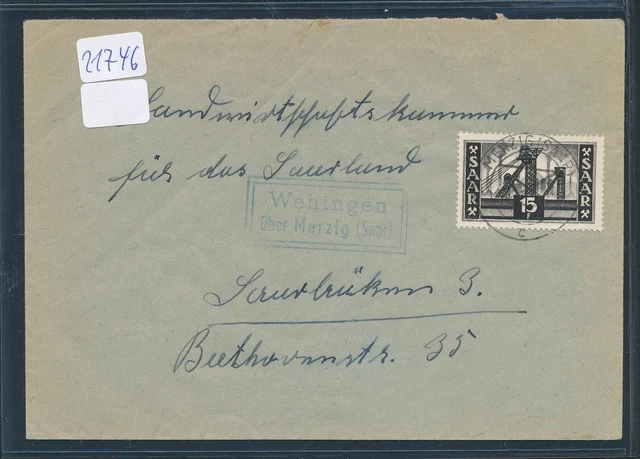 21746
Landwirtschaftskammer
für das Saarland
Wehingen
über Merzig (Saar)
SAAR
15F
SAAR
MERZIG (SAAR)
c
Saarbrüken 3.
Beethovenstr. 35